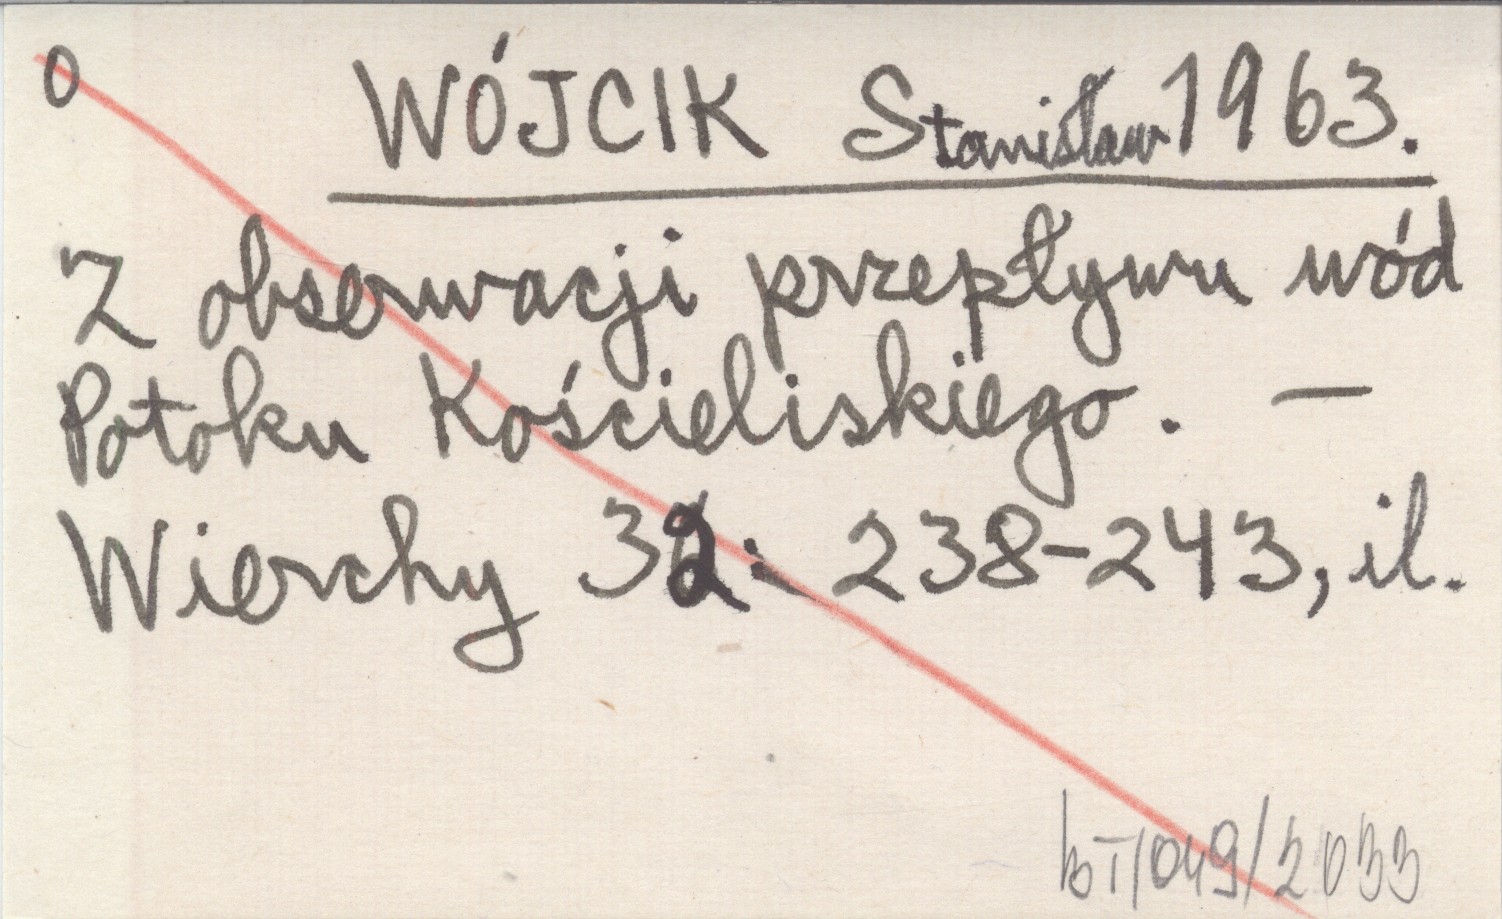 0 WÓJCIK Stanisław 1963.
Z obserwacji przepływu wód
Potoku Kościeliskiego. —
Wierchy 32: 238-243, il.
bT/049/2033